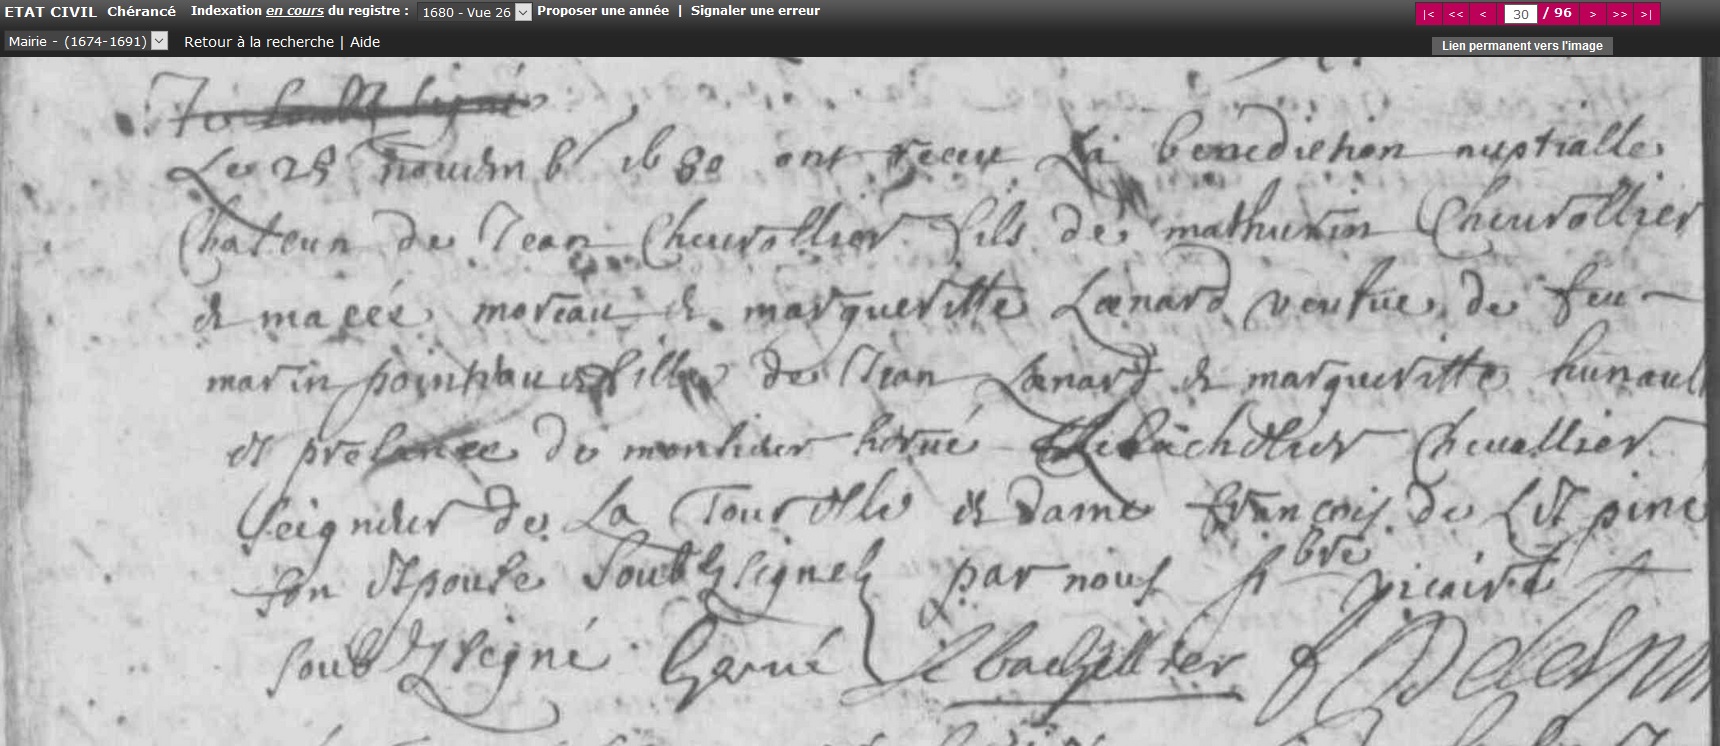 ETAT CIVIL Chérancé Indexation en cours du registre : 1680 - Vue 26 Proposer une année | Signaler une erreur |< << < 30 / 96 > >> >|
Mairie - (1674-1691) Retour à la recherche | Aide Lien permanent vers l'image
Le 28 novembr 1680 ont receu La benediction nuptialle
Chateun de Jean Chevrollier fils de mathurin Chevrollier
& de macée moreau & margueritte Lœnard veufue de feu
marin pointeau fille de Jean Lœnard & margueritte hunault
et presence de monsieur hervé Le bachelier Chevallier
Seigneur de La Tour et de dame françois de Lespine
son espouse soubz signez par nous pbre vicaire
soubz signé Hervé Le bachellier f Delespin